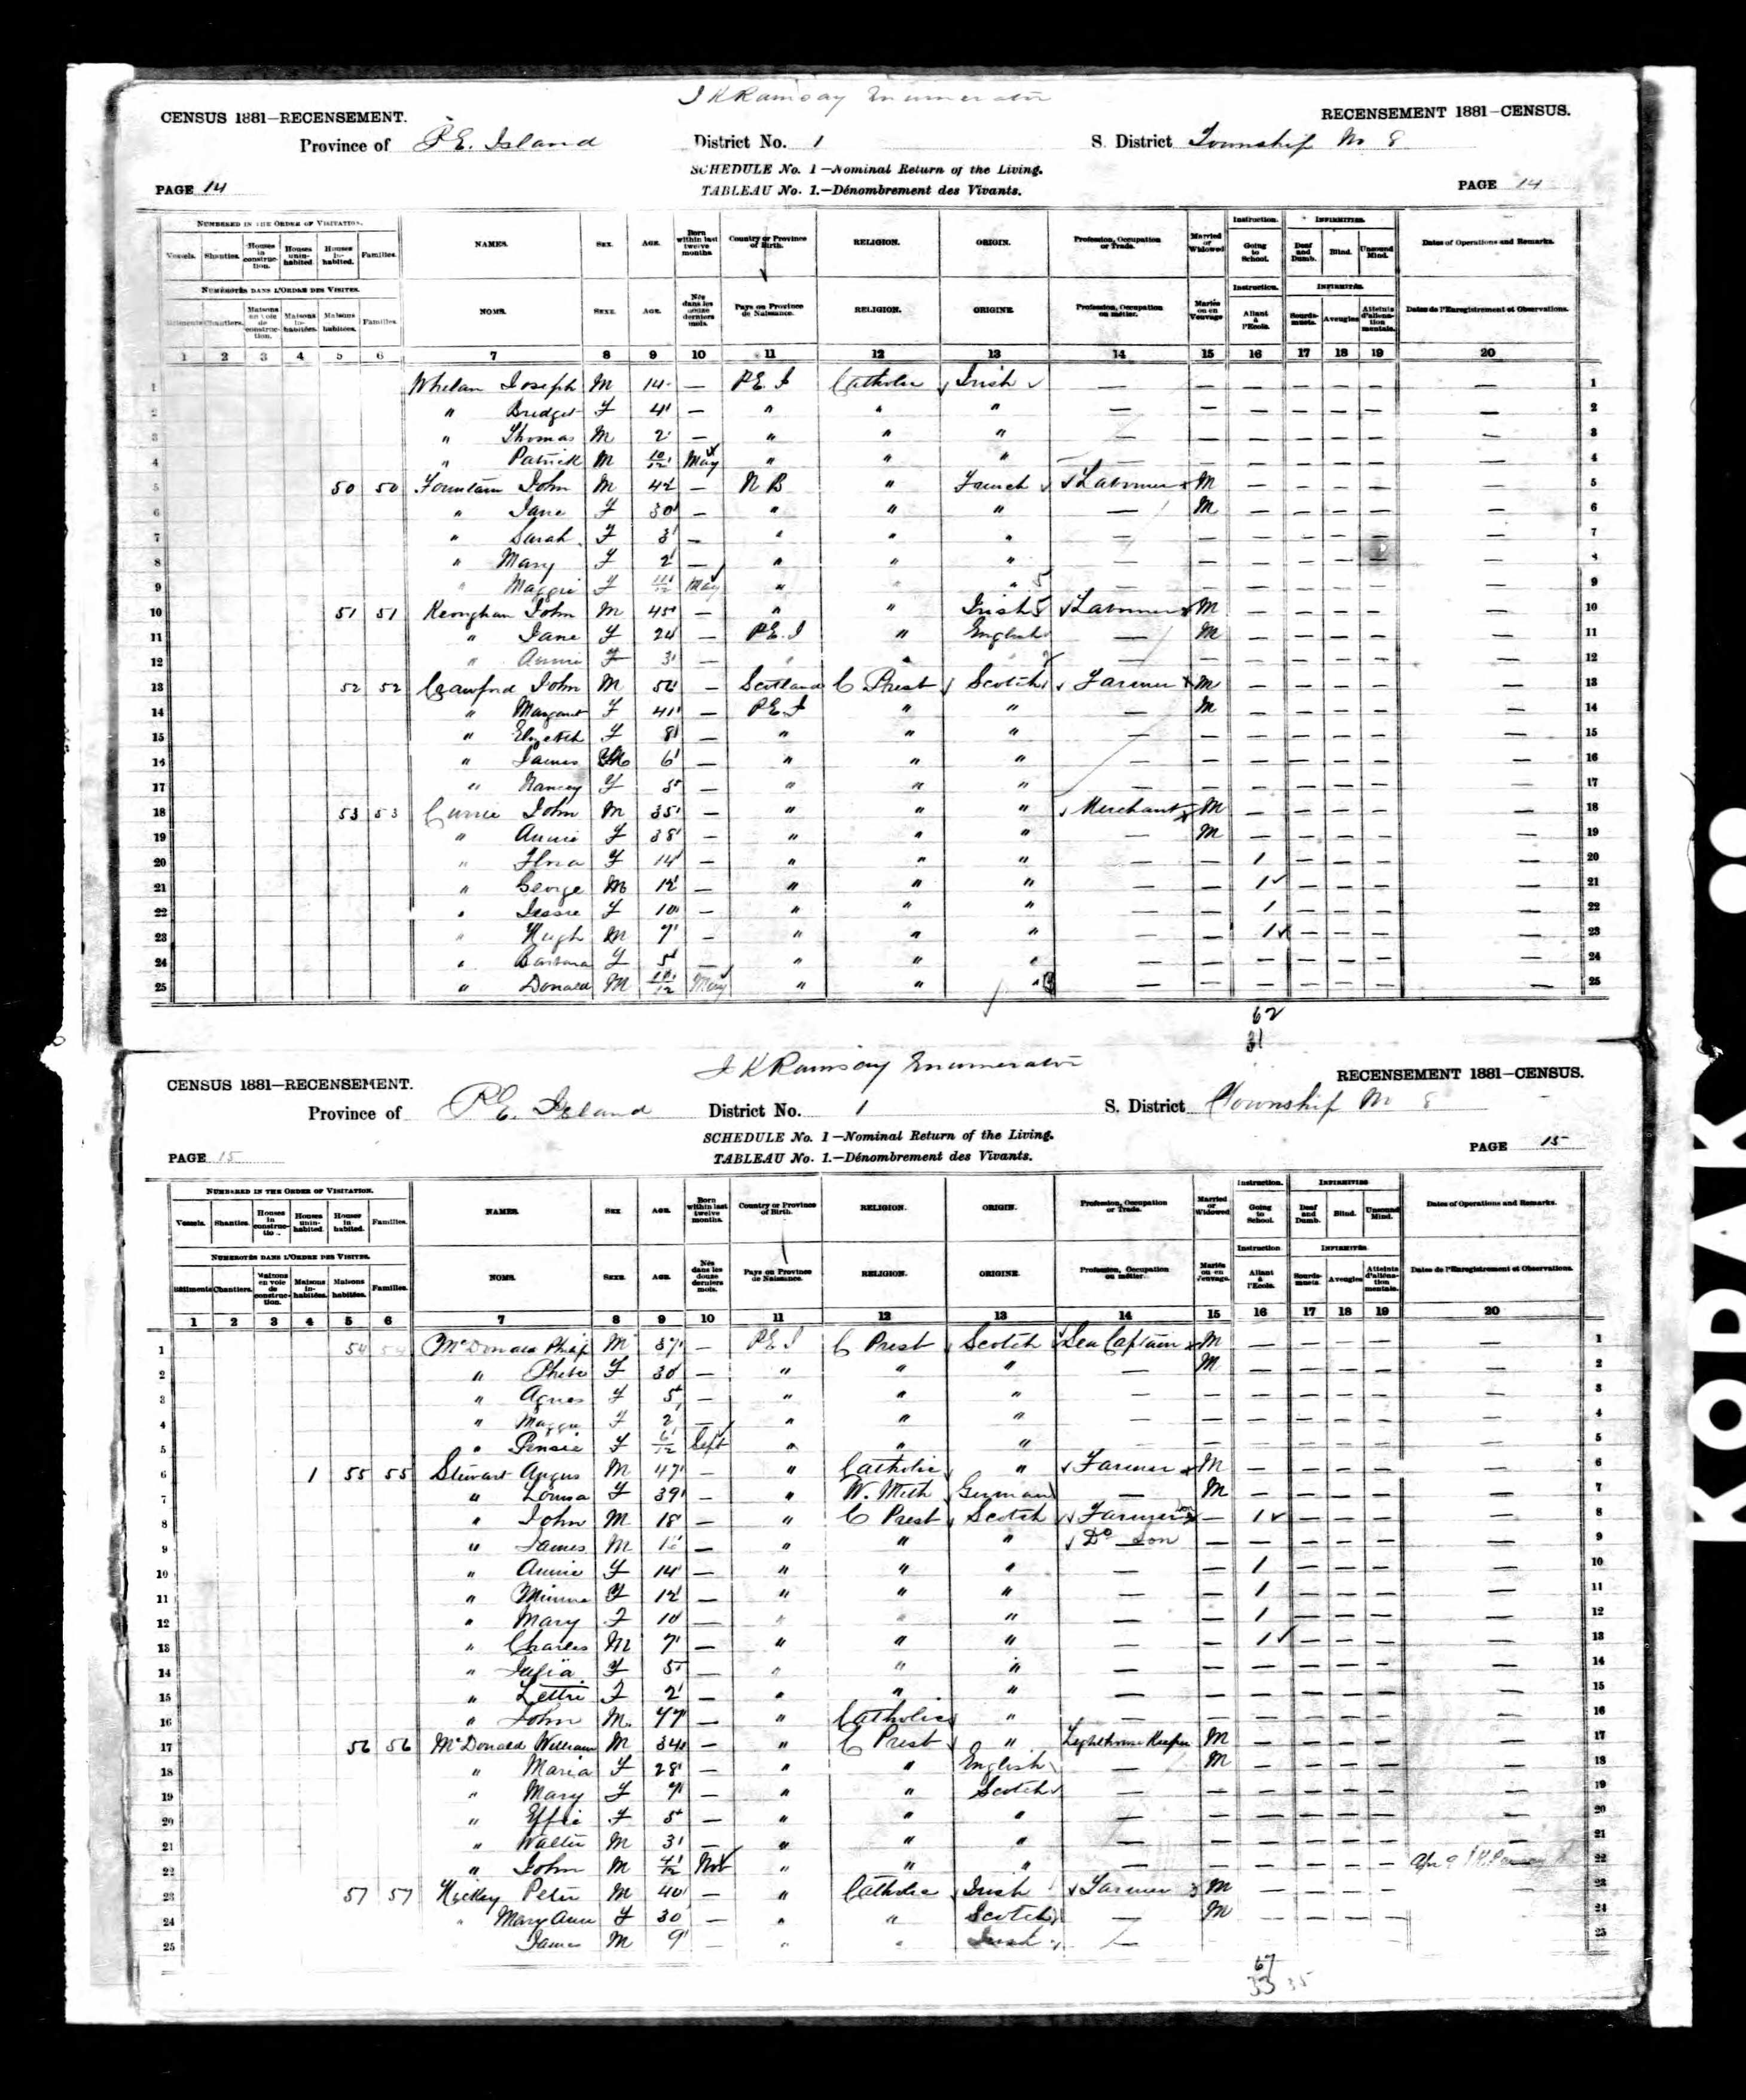 J K Ramsay Enumerator
CENSUS 1881–RECENSEMENT. RECENSEMENT 1881–CENSUS.
Province of P.E. Island District No. 1 S. District Township No 8
SCHEDULE No. 1—Nominal Return of the Living.
PAGE 14 TABLEAU No. 1.—Dénombrement des Vivants. PAGE 14
NUMBERED IN THE ORDER OF VISITATION. NAMES. SEX. AGE. Born within last twelve months. Country or Province of Birth. RELIGION. ORIGIN. Profession, Occupation or Trade. Married or Widowed. Instruction. Going to School. INFIRMITIES. Deaf and Dumb. Blind. Unsound Mind. Dates of Operations and Remarks.
Vessels. Shanties. Houses in construction. Houses uninhabited. Houses inhabited. Families.
NUMÉROTÉS DANS L'ORDRE DES VISITES. NOMS. SEXE. AGE. Nés dans les douze derniers mois. Pays ou Province de Naissance. RELIGION. ORIGINE. Profession, Occupation ou métier. Mariés ou en Veuvage. Instruction. Allant à l'Ecole. INFIRMITÉS. Sourds-muets. Aveugles. Atteints d'aliénation mentale. Dates de l'Enregistrement et Observations.
Bâtiments Chantiers. Maisons en voie de construction. Maisons inhabitées. Maisons habitées. Families.
1 2 3 4 5 6 7 8 9 10 11 12 13 14 15 16 17 18 19 20
1 Whelan Joseph M 14 — P.E.I Catholic Irish — — — — — — — 1
2 " Bridget F 4 — " " " — — — — — — — 2
3 " Thomas M 2 — " " " — — — — — — — 3
4 " Patrick M 10/12 May " " " — — — — — — — 4
5 50 50 Fountain John M 42 — N B " French Labourer M — — — — — 5
6 " Jane F 30 — " " " — M — — — — — 6
7 " Sarah F 3 — " " " — — — — — — — 7
8 " Mary F 2 — " " " — — — — — — — 8
9 " Maggie F 11/12 May " " " — — — — — — — 9
10 51 51 Keonghan John M 45 — " " Irish Labourer M — — — — — 10
11 " Jane F 24 — P.E.I " English — M — — — — — 11
12 " Annie F 3 — " " — — — — — — — 12
13 52 52 Crawford John M 54 — Scotland C Presb Scotch Farmer M — — — — — 13
14 " Margaret F 41 — P.E.I " " — M — — — — — 14
15 " Elizabeth F 8 — " " " — — — — — — — 15
16 " James M 6 — " " " — — — — — — — 16
17 " Nancy F 5 — " " " — — — — — — — 17
18 53 53 Currie John M 35 — " " " Merchant M — — — — — 18
19 " Annie F 38 — " " " — M — — — — — 19
20 " Flora F 14 — " " " — — 1 — — — — 20
21 " George M 12 — " " " — — 1 — — — — 21
22 " Jessie F 10 — " " " — — 1 — — — — 22
23 " Hugh M 7 — " " " — — 1 — — — — 23
24 " Barbara F 5 — " " " — — — — — — — 24
25 " Donald M 10/12 May " " " — — — — — — — 25
62
31
J K Ramsay Enumerator
CENSUS 1881—RECENSEMENT. RECENSEMENT 1881—CENSUS.
Province of P.E. Island District No. 1 S. District Township No 8
SCHEDULE No. 1—Nominal Return of the Living.
PAGE 15 TABLEAU No. 1.—Dénombrement des Vivants. PAGE 15
NUMBERED IN THE ORDER OF VISITATION. NAMES. SEX AGE. Born within last twelve months. Country or Province of Birth. RELIGION. ORIGIN. Profession, Occupation or Trade. Married or Widowed. Instruction. Going to School. INFIRMITIES Deaf and Dumb. Blind. Unsound Mind. Dates of Operations and Remarks.
Vessels. Shanties. Houses in construction. Houses uninhabited. Houses inhabited. Families.
NUMÉROTÉS DANS L'ORDRE DES VISITES. NOMS. SEXE. AGE. Nés dans les douze derniers mois. Pays ou Province de Naissance. RELIGION. ORIGINE. Profession, Occupation ou métier. Mariés ou en Veuvage. Instruction Allant à l'Ecole. INFIRMITÉS. Sourds-muets. Aveugles Atteints d'aliénation mentale. Dates de l'Enregistrement et Observations.
Bâtiments Chantiers. Maisons en voie de construction. Maisons inhabitées. Maisons habitées. Families.
1 2 3 4 5 6 7 8 9 10 11 12 13 14 15 16 17 18 19 20
1 54 54 McDonald Philip M 37 — P.E.I C Presb Scotch Sea Captain M — — — — — 1
2 " Phebe F 30 — " " " — M — — — — — 2
3 " Agnes F 5 — " " " — — — — — — — 3
4 " Maggie F 2 — " " " — — — — — — — 4
5 " F 6/12 Sept " " " — — — — — — — 5
6 1 55 55 Stewart Angus M 47 — " Catholic " Farmer M — — — — — 6
7 " Louisa F 39 — " W. Meth German — M — — — — — 7
8 " John M 18 — " C Presb Scotch Farmer son — 1 — — — — 8
9 " James M — " " " Do Son — — — — — — 9
10 " Annie F 14 — " " " — — 1 — — — — 10
11 " Minnie F 12 — " " " — — 1 — — — — 11
12 " Mary F 10 — " " " — — 1 — — — — 12
13 " Charles M 7 — " " " — — 1 — — — — 13
14 " Julia F 5 — " " " — — — — — — — 14
15 " Lettie F 2 — " " " — — — — — — — 15
16 " John M. 47 — " Catholic " — — — — — — — 16
17 56 56 McDonald William M 34 — " C Presb " Lighthouse Keeper M — — — — — 17
18 " Maria F 28 — " " English — M — — — — — 18
19 " Mary F 7 — " " Scotch — — — — — — — 19
20 " Effie F 5 — " " " — — — — — — — 20
21 " Walter M 3 — " " " — — — — — — — 21
22 " John M 4/12 Nov " " " — — — — — — Apr 9 22
23 57 57 Hickey Peter M 40 — " Catholic Irish Farmer M — — — — — 23
24 " Mary Ann F 30 — " " Scotch — M — — — — — 24
25 James M 9 — " " Irish — 25
67
33 35
KODAK